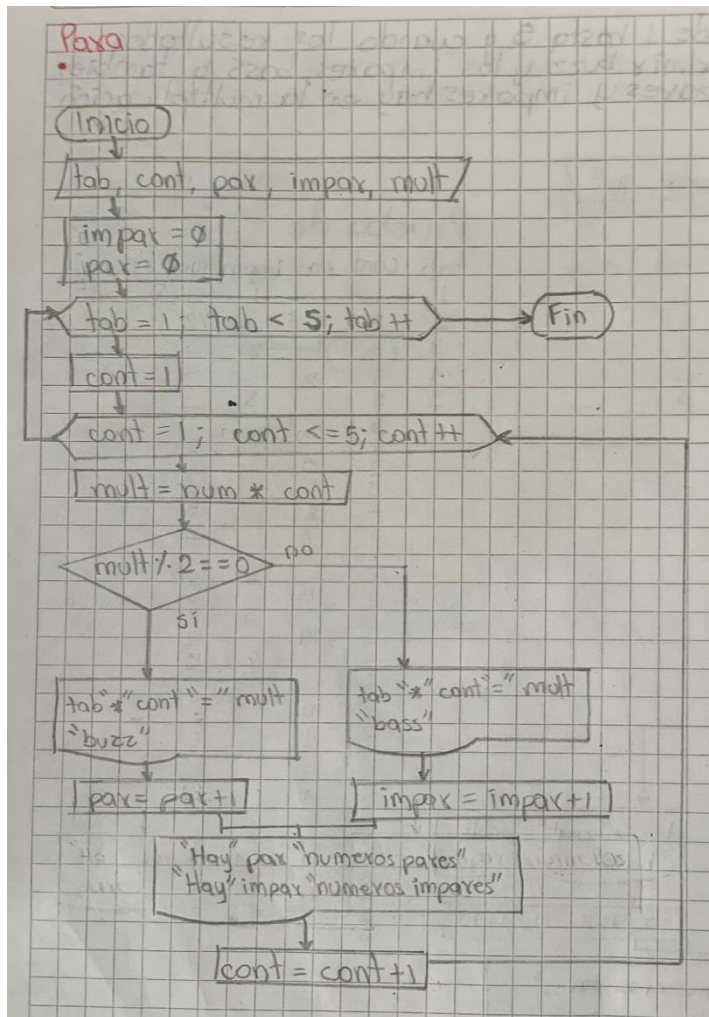 Para
Inicio
tab, cont, par, impar, mult
impar = 0
par = 0
tab = 1; tab < 5; tab ++
Fin
cont = 1
cont = 1; cont <= 5; cont ++
mult = num * cont
mult % 2 == 0
no
sí
tab "*" cont "=" mult
"buzz"
tab "*" cont "=" mult
"bass"
par = par + 1
impar = impar + 1
"Hay" par "numeros pares"
"Hay" impar "numeros impares"
cont = cont + 1